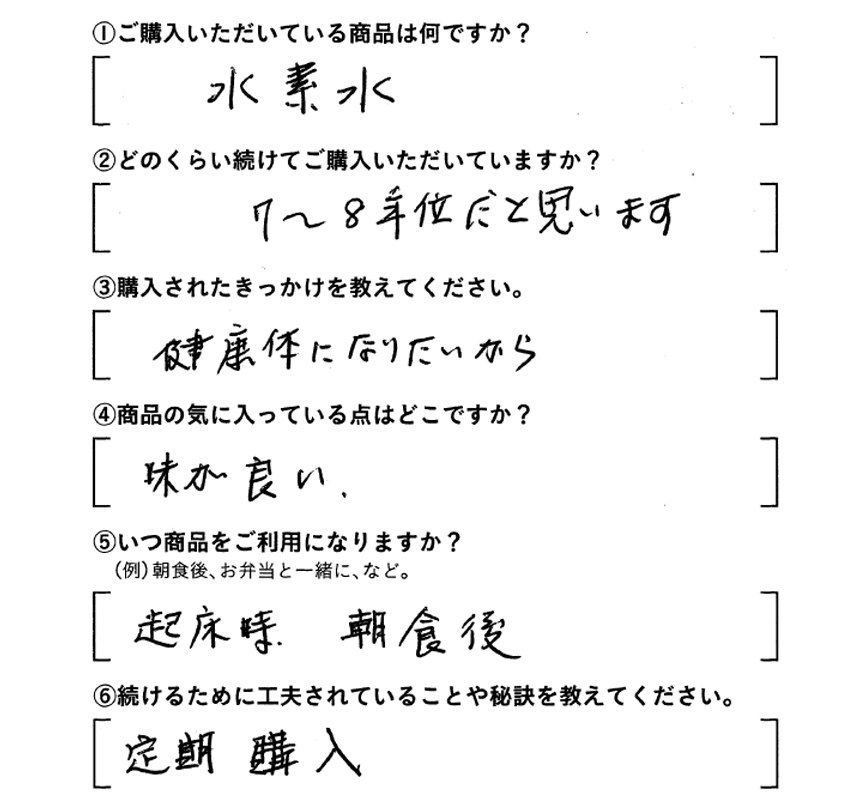 ①ご購入いただいている商品は何ですか？
水素水
②どのくらい続けてご購入いただいていますか？
7〜8年位だと思います
③購入されたきっかけを教えてください。
健康体になりたいから
④商品の気に入っている点はどこですか？
味が良い.
⑤いつ商品をご利用になりますか？
（例）朝食後、お弁当と一緒に、など。
起床時. 朝食後
⑥続けるために工夫されていることや秘訣を教えてください。
定期購入